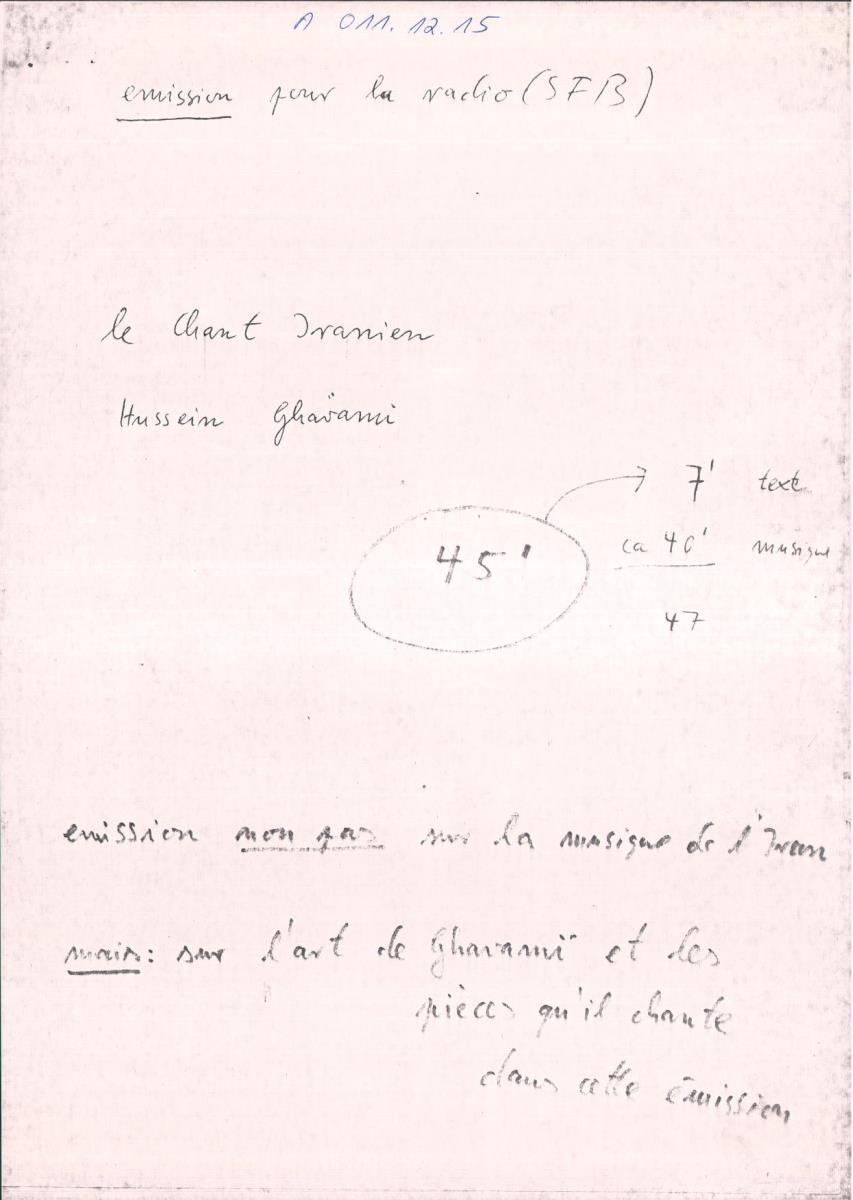 A 011.12.15
emission pour la radio (SFB)
le Chant Iranien
Hussein Ghävami
7' text
45' ca 40' musique
47
emission non pas sur la musique de l'Iran
mais: sur l'art de Ghavamï et les
pièces qu'il chante
dans cette émission